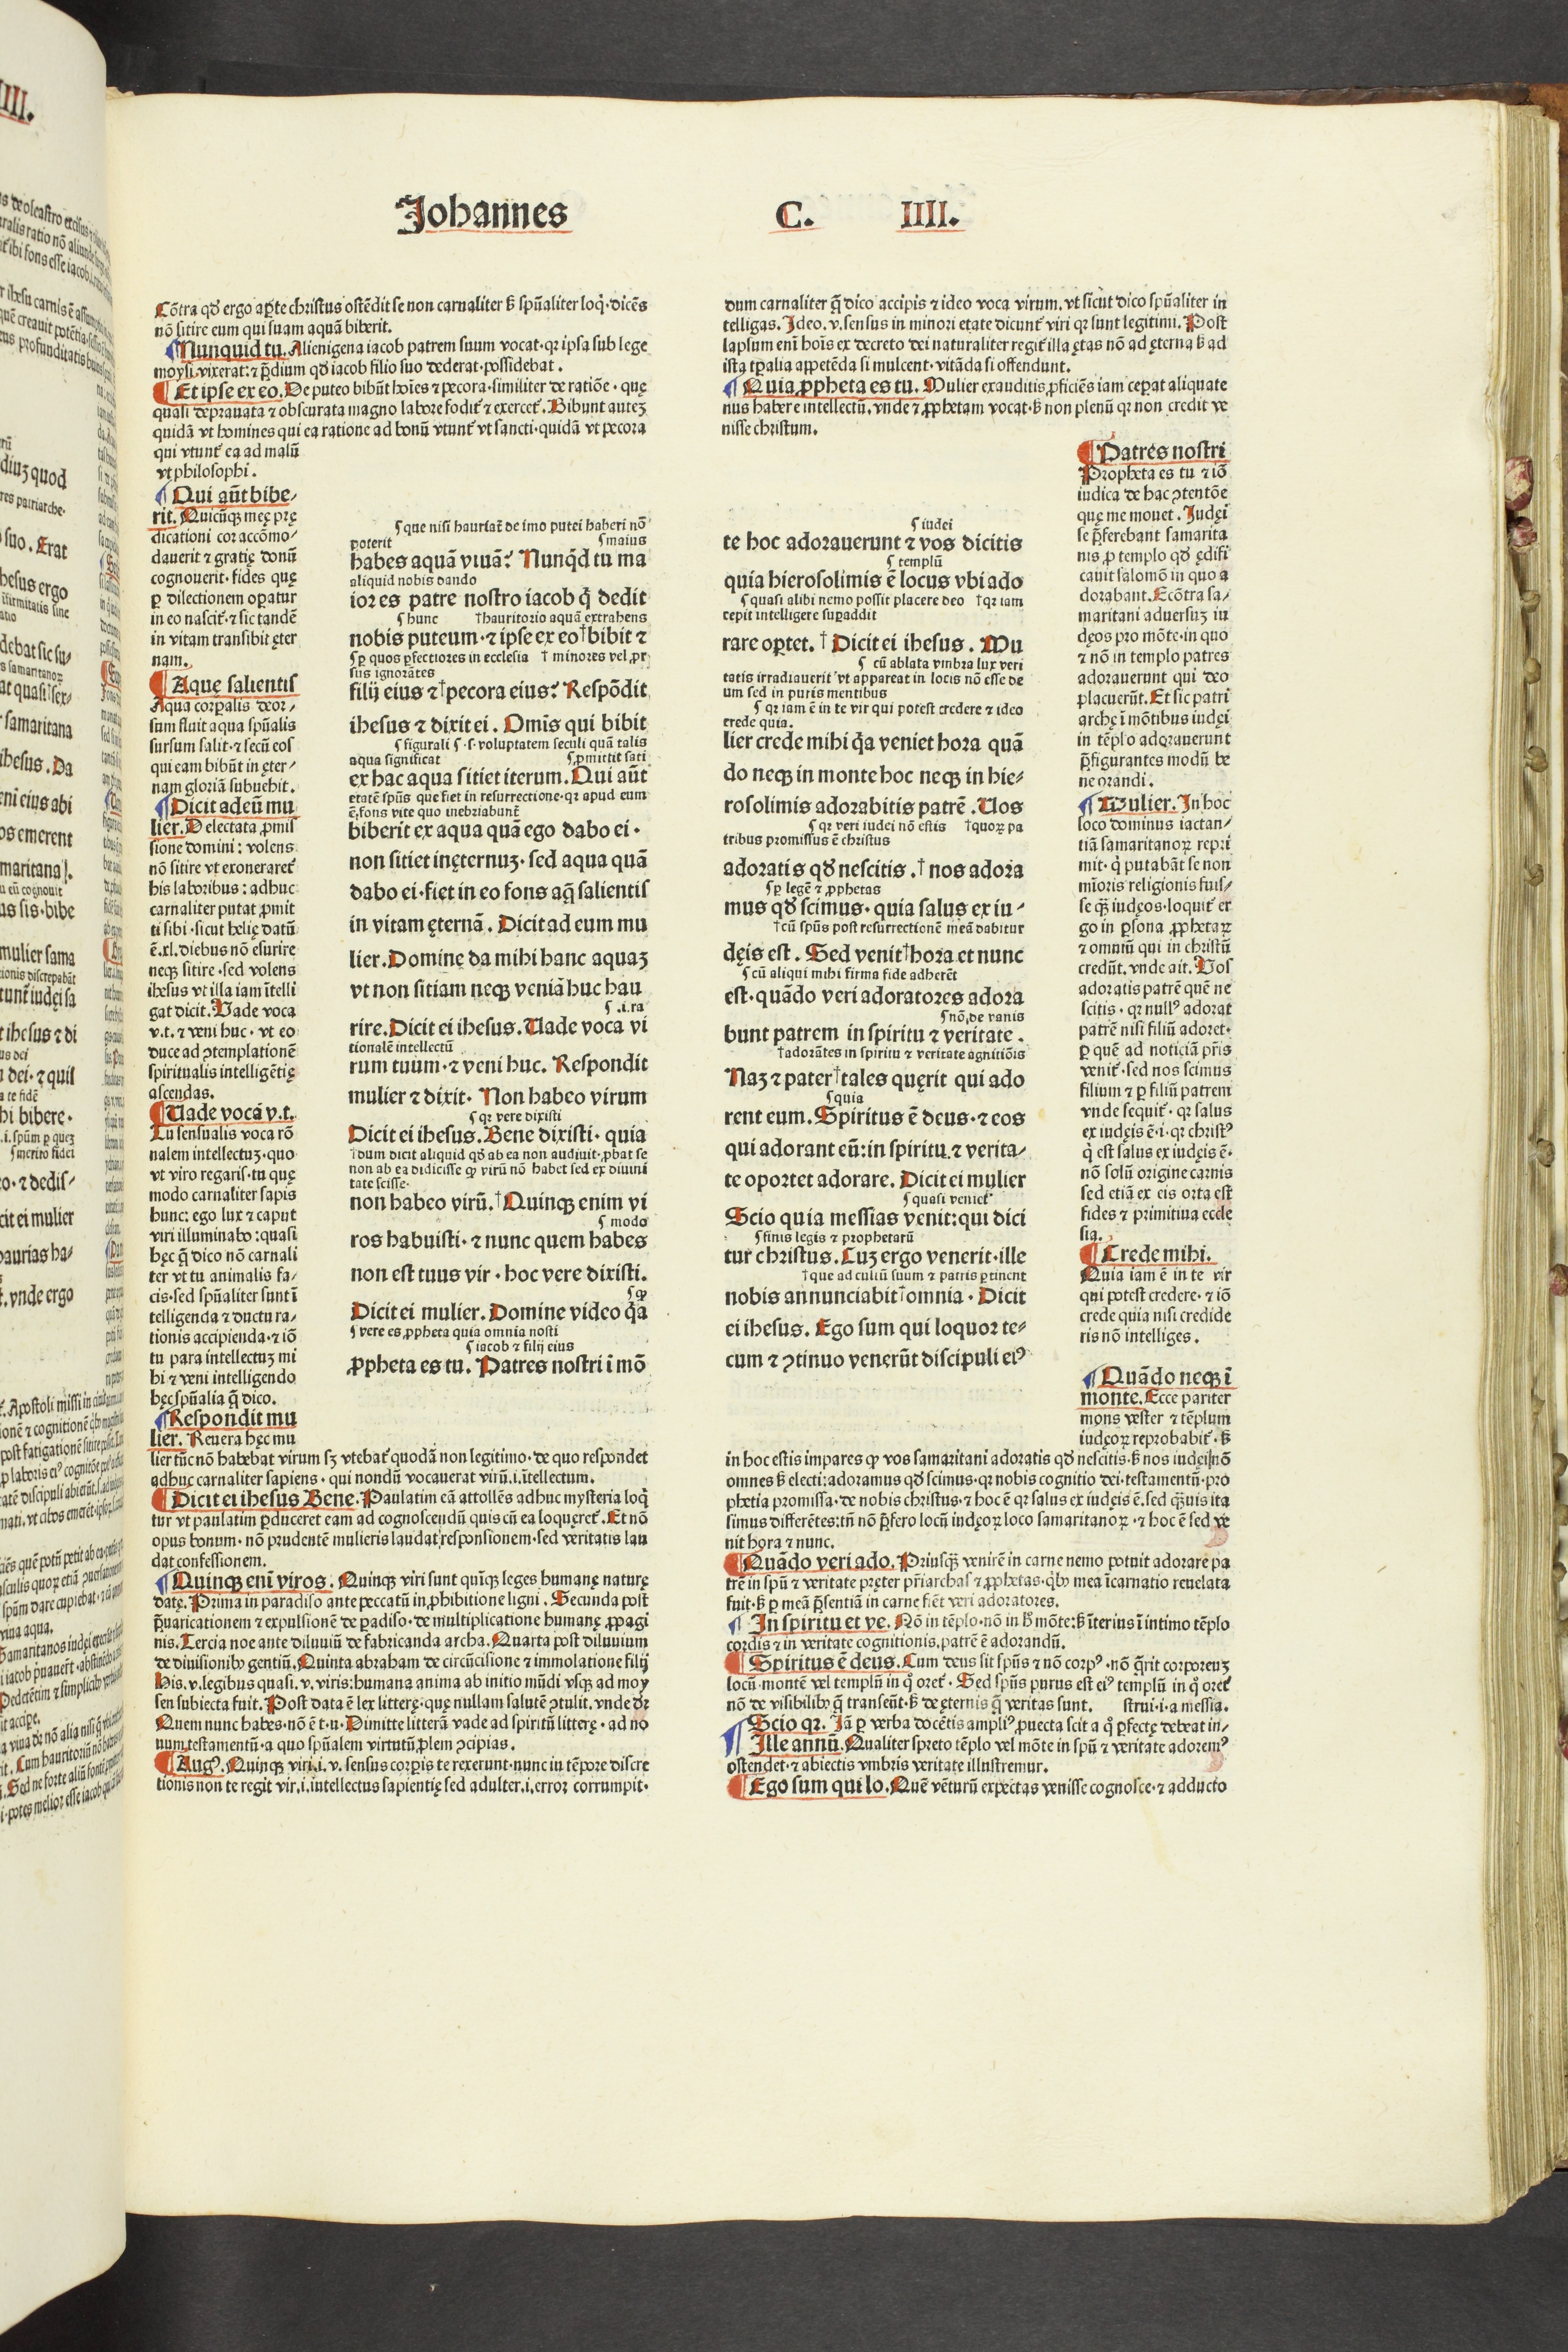 Johannes C. IIII.
Cōtra qđ ergo apte christus ostēdit se non carnaliter ꝫ spūaliter loq̇· dicēs
nō sitire eum qui suam aquā biberit.
¶Nunquid tu. Alienigena iacob patrem suum vocat· qꝛ ipsa sub lege
moysi vixerat: ⁊ p̄dium qđ iacob filio suo dederat possidebat.
¶Et ipse ex eo. De puteo bibūt hoīes ⁊ pecora· similiter de ratiōe· quę
quasi deprauata ⁊ obscurata magno labore fodit̄ ⁊ exercet̄. Bibunt auteꝫ
quidā vt homines qui ea ratione ad bonū vtunt̄ vt sancti· quidā vt pecora
qui vtunt̄ ea ad malū
vt philosophi.
¶Qui aūt bibe⸗
rit. Quicūqꝫ meę prę
dicationi cor accōmo⸗
dauerit ⁊ gratię donū
cognouerit· fides quę
ꝑ dilectionem oꝑatur
in eo nascit̄· ⁊ sic tandē
in vitam transibit ęter
nam.
¶Aquę salientis
Aqua corꝑalis deor⸗
sum fluit aqua spūalis
sursum salit· ⁊ secū eos
qui eam bibūt in ęter⸗
nam gloriā subuehit.
¶Dicit ad eū mu
lier. Delectata ꝓmis
sione domini: volens
nō sitire vt exoneraret̄
his laboribus: adhuc
carnaliter putat ꝓmit
ti sibi· sicut helię datū
ē. xl. diebus nō esurire
neqꝫ sitire· sed volens
ihesus vt illa iam ītelli
gat dicit. Vade voca
v.t. ⁊ veni huc· vt eo
duce ad ꝯtemplationē
spiritualis intelligētię
ascendas.
¶Uade voca v.t.
Tu sensualis voca rō
nalem intellectuꝫ· quo
vt viro regaris· tu quę
modo carnaliter sapis
hunc: ego lux ⁊ caput
viri illuminabo: quasi
hęc q̄ dico nō carnali
ter vt tu animalis fa⸗
cis· sed spūaliter sunt ī
telligenda ⁊ ductu ra⸗
tionis accipienda· ⁊ iō
tu para intellectuꝫ mi
hi ⁊ veni intelligendo
hęc spūalia q̄ dico.
¶Respondit mu
lier. Reuera hęc mu
lier tūc nō habebat virum sꝫ vtebat̄ quodā non legitimo· de quo respondet
adhuc carnaliter sapiens· qui nondū vocauerat virū .i. ītellectum.
¶Dicit ei ihesus Bene. Paulatim eā attollēs adhuc mysteria loq̇
tur vt paulatim ꝑduceret eam ad cognoscendū quis cū ea loqueret̄. Et nō
opus bonum· nō prudentē mulieris laudat responsionem· sed veritatis lau
dat confessionem.
¶Quinqꝫ enī viros. Quinqꝫ viri sunt quīqꝫ leges humanę naturę
datę. Prima in paradiso ante peccatū in ꝓhibitione ligni. Secunda post
p̄uaricationem ⁊ expulsionē de ꝑadiso· de multiplicatione humanę ꝓpagi
nis. Tercia noe ante diluuiū de fabricanda archa. Quarta post diluuium
de diuisionibꝰ gentiū. Quinta abraham de circūcisione ⁊ immolatione filij
His .v. legibus quasi .v. viris: humana anima ab initio mūdi vsqꝫ ad moy
sen subiecta fuit. Post data ē lex litterę· quę nullam salutē ꝯtulit. vnde dꝛ
Quem nunc habes· nō ē t.u. Dimitte litterā vade ad spiritū litterę· ad no
num testamentū· a quo spūalem virtutū ꝓlem ꝯcipias.
¶Augꝰ. Quinqꝫ viri .i. v. sensus corꝑis te rexerunt· nunc in tēpore discre
tionis non te regit vir .i. intellectus sapientię sed adulter .i. error corrumpit·
que nisi hauriat̄ de imo putei haberi nō
poterit maius
habes aquā viuā? Nunq̇d tu ma
aliquid nobis dando
ior es patre nostro iacob q̇ dedit
hunc †hauritorio aquā extrahens
nobis puteum· ⁊ ipse ex eo†bibit ⁊
ꝑ quos ꝑfectiores in ecclesia † minores vel ꝓr
sus ignorātes
filij eius ⁊†pecora eius? Respōdit
ihesus ⁊ dixit ei. Omīs qui bibit
figurali ·s· voluptatem seculi quā talis
aqua significat ꝑmittit sati
ex hac aqua sitiet iterum. Qui aūt
etatē spūs que fiet in resurrectione· qꝛ apud eum
ē, fons vite quo inebriabunt̄
biberit ex aqua quā ego dabo ei·
non sitiet inęternuꝫ· sed aqua quā
dabo ei· fiet in eo fons aq̄ salientis
in vitam ęternā. Dicit ad eum mu
lier. Domine da mihi hanc aquaꝫ
vt non sitiam neqꝫ veniā huc hau
.i. ra
rire. Dicit ei ihesus. Uade voca vi
tionalē intellectū
rum tuum· ⁊ veni huc. Respondit
mulier ⁊ dixit· Non habeo virum
qꝛ vere dixisti
Dicit ei ihesus. Bene dixisti· quia
†dum dicit aliquid qđ ab ea non audiuit· ꝓbat se
non ab ea didicisse ꝙ virū nō habet sed ex diuini
tate scisse·
non habeo virū.†Quinqꝫ enim vi
modo
ros habuisti· ⁊ nunc quem habes
non est tuus vir· hoc vere dixisti.
ꝙ
Dicit ei mulier. Domine video q̇a
vere es ꝓpheta quia omnia nosti
iacob ⁊ filij eius
ꝓpheta es tu. Patres nostri ī mō
dum carnaliter q̄ dico accipis ⁊ ideo voca virum. vt sicut dico spūaliter in
telligas. Ideo .v. sensus in minori etate dicunt̄ viri qꝛ sunt legitimi. Post
lapsum enī hoīs ex decreto dei naturaliter regit̄ illa ętas nō ad ęterna ꝫ ad
ista tꝑalia appetēda si mulcent· vitāda si offendunt.
¶Quia ꝓpheta es tu. Mulier ex auditis ꝓficiēs iam ceꝑat aliquate
nus habere intellectū. vnde ⁊ ꝓphetam vocat· ꝫ non plenū qꝛ non credit ve
nisse christum.
iudei
te hoc adorauerunt ⁊ vos dicitis
templū
quia hierosolimis ē locus vbi ado
quasi alibi nemo possit placere deo †qꝛ iam
cepit intelligere suꝑaddit
rare oꝑtet.† Dicit ei ihesus. Mu
cū ablata vmbra lux veri
tatis irradiauerit vt appareat in locis nō esse de
um sed in puris mentibus
qꝛ iam ē in te vir qui potest credere ⁊ ideo
crede quia.
lier crede mihi q̇a veniet hora quā
do neqꝫ in monte hoc neqꝫ in hie⸗
rosolimis adorabitis patrē. Uos
qꝛ veri iudei nō estis †quoꝝ pa
tribus promissus ē christus
adoratis qđ nescitis.† nos adora
ꝑ legē ⁊ ꝓphetas
mus qđ scimus· quia salus ex iu⸗
†cū spūs post resurrectionē meā dabitur
dęis est. Sed venit†hora et nunc
cū aliqui mihi firma fide adherēt
est· quādo veri adoratores adora
nō, de vanis
bunt patrem in spiritu ⁊ veritate.
†adorātes in spiritu ⁊ veritate agnitiōis
Naꝫ ⁊ pater†tales quęrit qui ado
quia
rent eum. Spiritus ē deus· ⁊ eos
qui adorant eū: in spiritu ⁊ verita⸗
te oportet adorare. Dicit ei mulier
quasi veniet̄
Scio quia messias venit: qui dici
finis legis ⁊ prophetarū
tur christus. Cuꝫ ergo venerit· ille
†que ad cultū suum ⁊ patris ꝑtinent
nobis annunciabit†omnia· Dicit
ei ihesus. Ego sum qui loquor te⸗
cum ⁊ ꝯtinuo venerūt discipuli eiꝰ
¶Patres nostri
Propheta es tu ⁊ iō
iudica de hac ꝯtentōe
quę me mouet. Judęi
se p̄ferebant samarita
nis ꝓ templo qđ ędifi
cauit salomō in quo a
dorabant. Ecōtra sa⸗
maritani aduersuꝫ iu
dęos pro mōte· in quo
⁊ nō in templo patres
adorauerunt qui deo
placuerūt. Et sic patri
archę ī mōtibus iudęi
in tēplo adorauerunt
p̄figurantes modū be
ne orandi.
¶Mulier. In hoc
loco dominus iactan⸗
tiā samaritanoꝝ repri
mit· q̇ putabāt se non
mīoris religionis fuis⸗
se q̄ꝫ iudęos· loquit̄ er
go in ꝑsona ꝓphetaꝝ
⁊ omniū qui in christū
credūt. vnde ait. Vos
adoratis patrē quē ne
scitis· qꝛ nullꝰ adorat
patrē nisi filiū adoret·
ꝑ quē ad noticiā pr̄is
venit̄· sed nos scimus
filium ⁊ ꝑ filiū patrem
vnde sequit̄· qꝛ salus
ex iudęis ē ·i· qꝛ christꝰ
q̇ est salus ex iudęis ē·
nō solū origine carnis
sed etiā ex eis orta est
fides ⁊ primitiua eccle
sia.
¶Crede mihi.
Quia iam ē in te vir
qui potest credere· ⁊ iō
crede quia nisi credide
ris nō intelliges.
¶Quādo neqꝫ ī
monte. Ecce pariter
mons vester ⁊ tēplum
iudęoꝝ reprobabit̄· ꝫ
in hoc estis impares ꝙ vos samaritani adoratis qđ nescitis· ꝫ nos iudęi nō
omnes ꝫ electi: adoramus qđ scimus· qꝛ nobis cognitio dei· testamentū· pro
phetia promissa· de nobis christus· ⁊ hoc ē qꝛ salus ex iudęis ē. sed q̄ꝫuis ita
simus differētes: tn̄ nō p̄fero locū iudęoꝝ loco samaritanoꝝ· ⁊ hoc ē sed ve
nit hora ⁊ nunc.
¶Quādo veri ado. Priusq̄ꝫ venirē in carne nemo potuit adorare pa
trē in spū ⁊ veritate pręter pr̄iarchas ⁊ ꝓphetas· q̇bꝰ mea īcarnatio reuelata
fuit· ꝫ ꝑ meā p̄sentiā in carne fiēt veri adoratores.
¶In spiritu et ve. Nō in tēplo· nō in hͦ mōte: ꝫ īterius ī intimo tēplo
cordis ⁊ in veritate cognitionis, patrē ē adorandū.
¶Spiritus ē deus. Cum deus sit spūs ⁊ nō corpꝰ· nō q̄rit corporeuꝫ
locū· montē vel templū in q̊ oret̄· Sed spūs purus est eiꝰ templū in q̊ oret̄
nō de visibilibꝰ q̄ transeūt· ꝫ de ęternis q̄ veritas sunt. strui ·i· a messia.
¶Scio qꝛ. Jā ꝑ verba docētis ampliꝰ ꝓuecta scit a q̊ ꝑfectę debeat in⸗
¶Ille annū. Qualiter spreto tēplo vel mōte in spū ⁊ veritate adoremꝰ
ostendet· ⁊ abiectis vmbris veritate illustremur.
¶Ego sum qui lo. Quē vēturū expectas venisse cognosce· ⁊ adducto